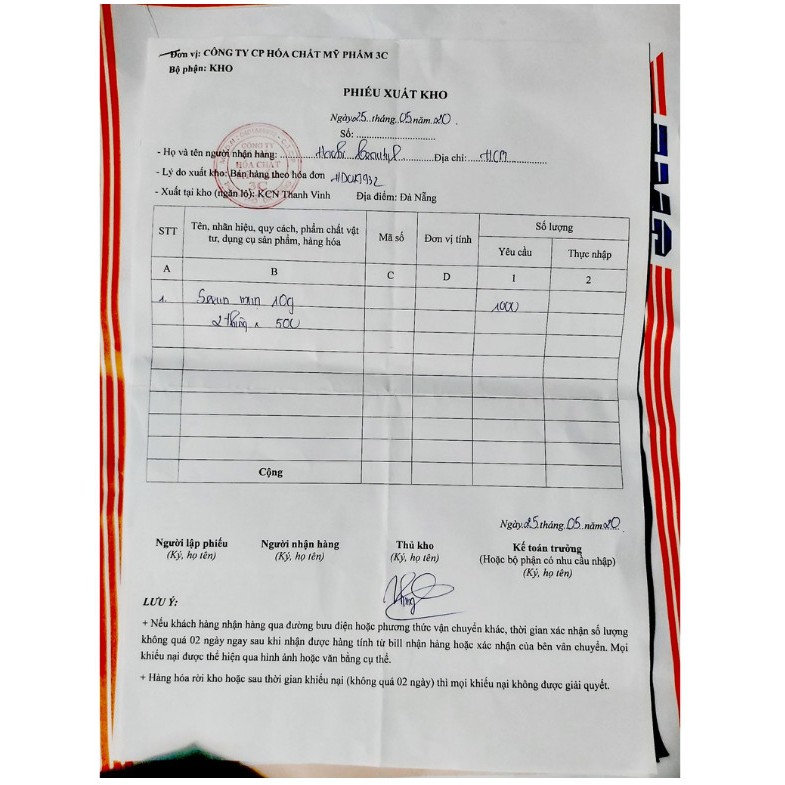 Đơn vị: CÔNG TY CP HÓA CHẤT MỸ PHẨM 3C
Bộ phận: KHO
PHIẾU XUẤT KHO
Ngày 25 tháng 05 năm 20.
Số: ............................
- Họ và tên người nhận hàng: Địa chỉ: HCM
CÔNG TY
HÓA CHẤT
3C
- Lý do xuất kho: Bán hàng theo hóa đơn
- Xuất tại kho (ngăn lô): KCN Thanh Vinh Địa điểm: Đà Nẵng
STT Tên, nhãn hiệu, quy cách, phẩm chất vật tư, dụng cụ sản phẩm, hàng hóa Mã số Đơn vị tính Số lượng
Yêu cầu Thực nhập
A B C D 1 2
1. mịn 10g 1000
2 thùng x 500
Cộng
Ngày 25 tháng 05 năm 20
Người lập phiếu Người nhận hàng Thủ kho Kế toán trưởng
(Ký, họ tên) (Ký, họ tên) (Ký, họ tên) (Hoặc bộ phận có nhu cầu nhập)
(Ký, họ tên)
LƯU Ý:
+ Nếu khách hàng nhận hàng qua đường bưu điện hoặc phương thức vận chuyển khác, thời gian xác nhận số lượng
không quá 02 ngày ngay sau khi nhận được hàng tính từ bill nhận hàng hoặc xác nhận của bên vân chuyển. Mọi
khiếu nại được thể hiện qua hình ảnh hoặc văn bằng cụ thể.
+ Hàng hóa rời kho hoặc sau thời gian khiếu nại (không quá 02 ngày) thì mọi khiếu nại không được giải quyết.